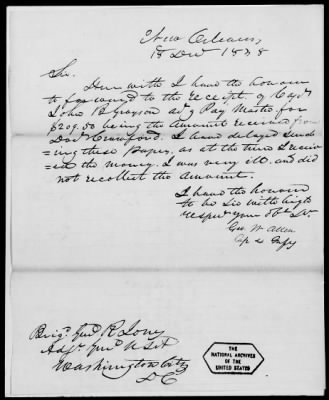 New Orleans,
15 Decr 1838
Sir.
Here with I have the honour
to forward to the receipt of Capt
John B Grayson actg Pay Master for
$209.50 being the Amount received from
Davd Crawford. I have delayed send
=ing these Papers, as at the time I receiv
=ed the money. I was very ill. and did
not recollect the Amount.
I have the honour
to be Sir with high
respect your Obt Svt.
Geo. W. Allen
Cp 4 Infy
Brigr Genl R Jones
Adjt Genl U.S.A
Washington City
D C
THE
NATIONAL ARCHIVES
OF THE
UNITED STATES